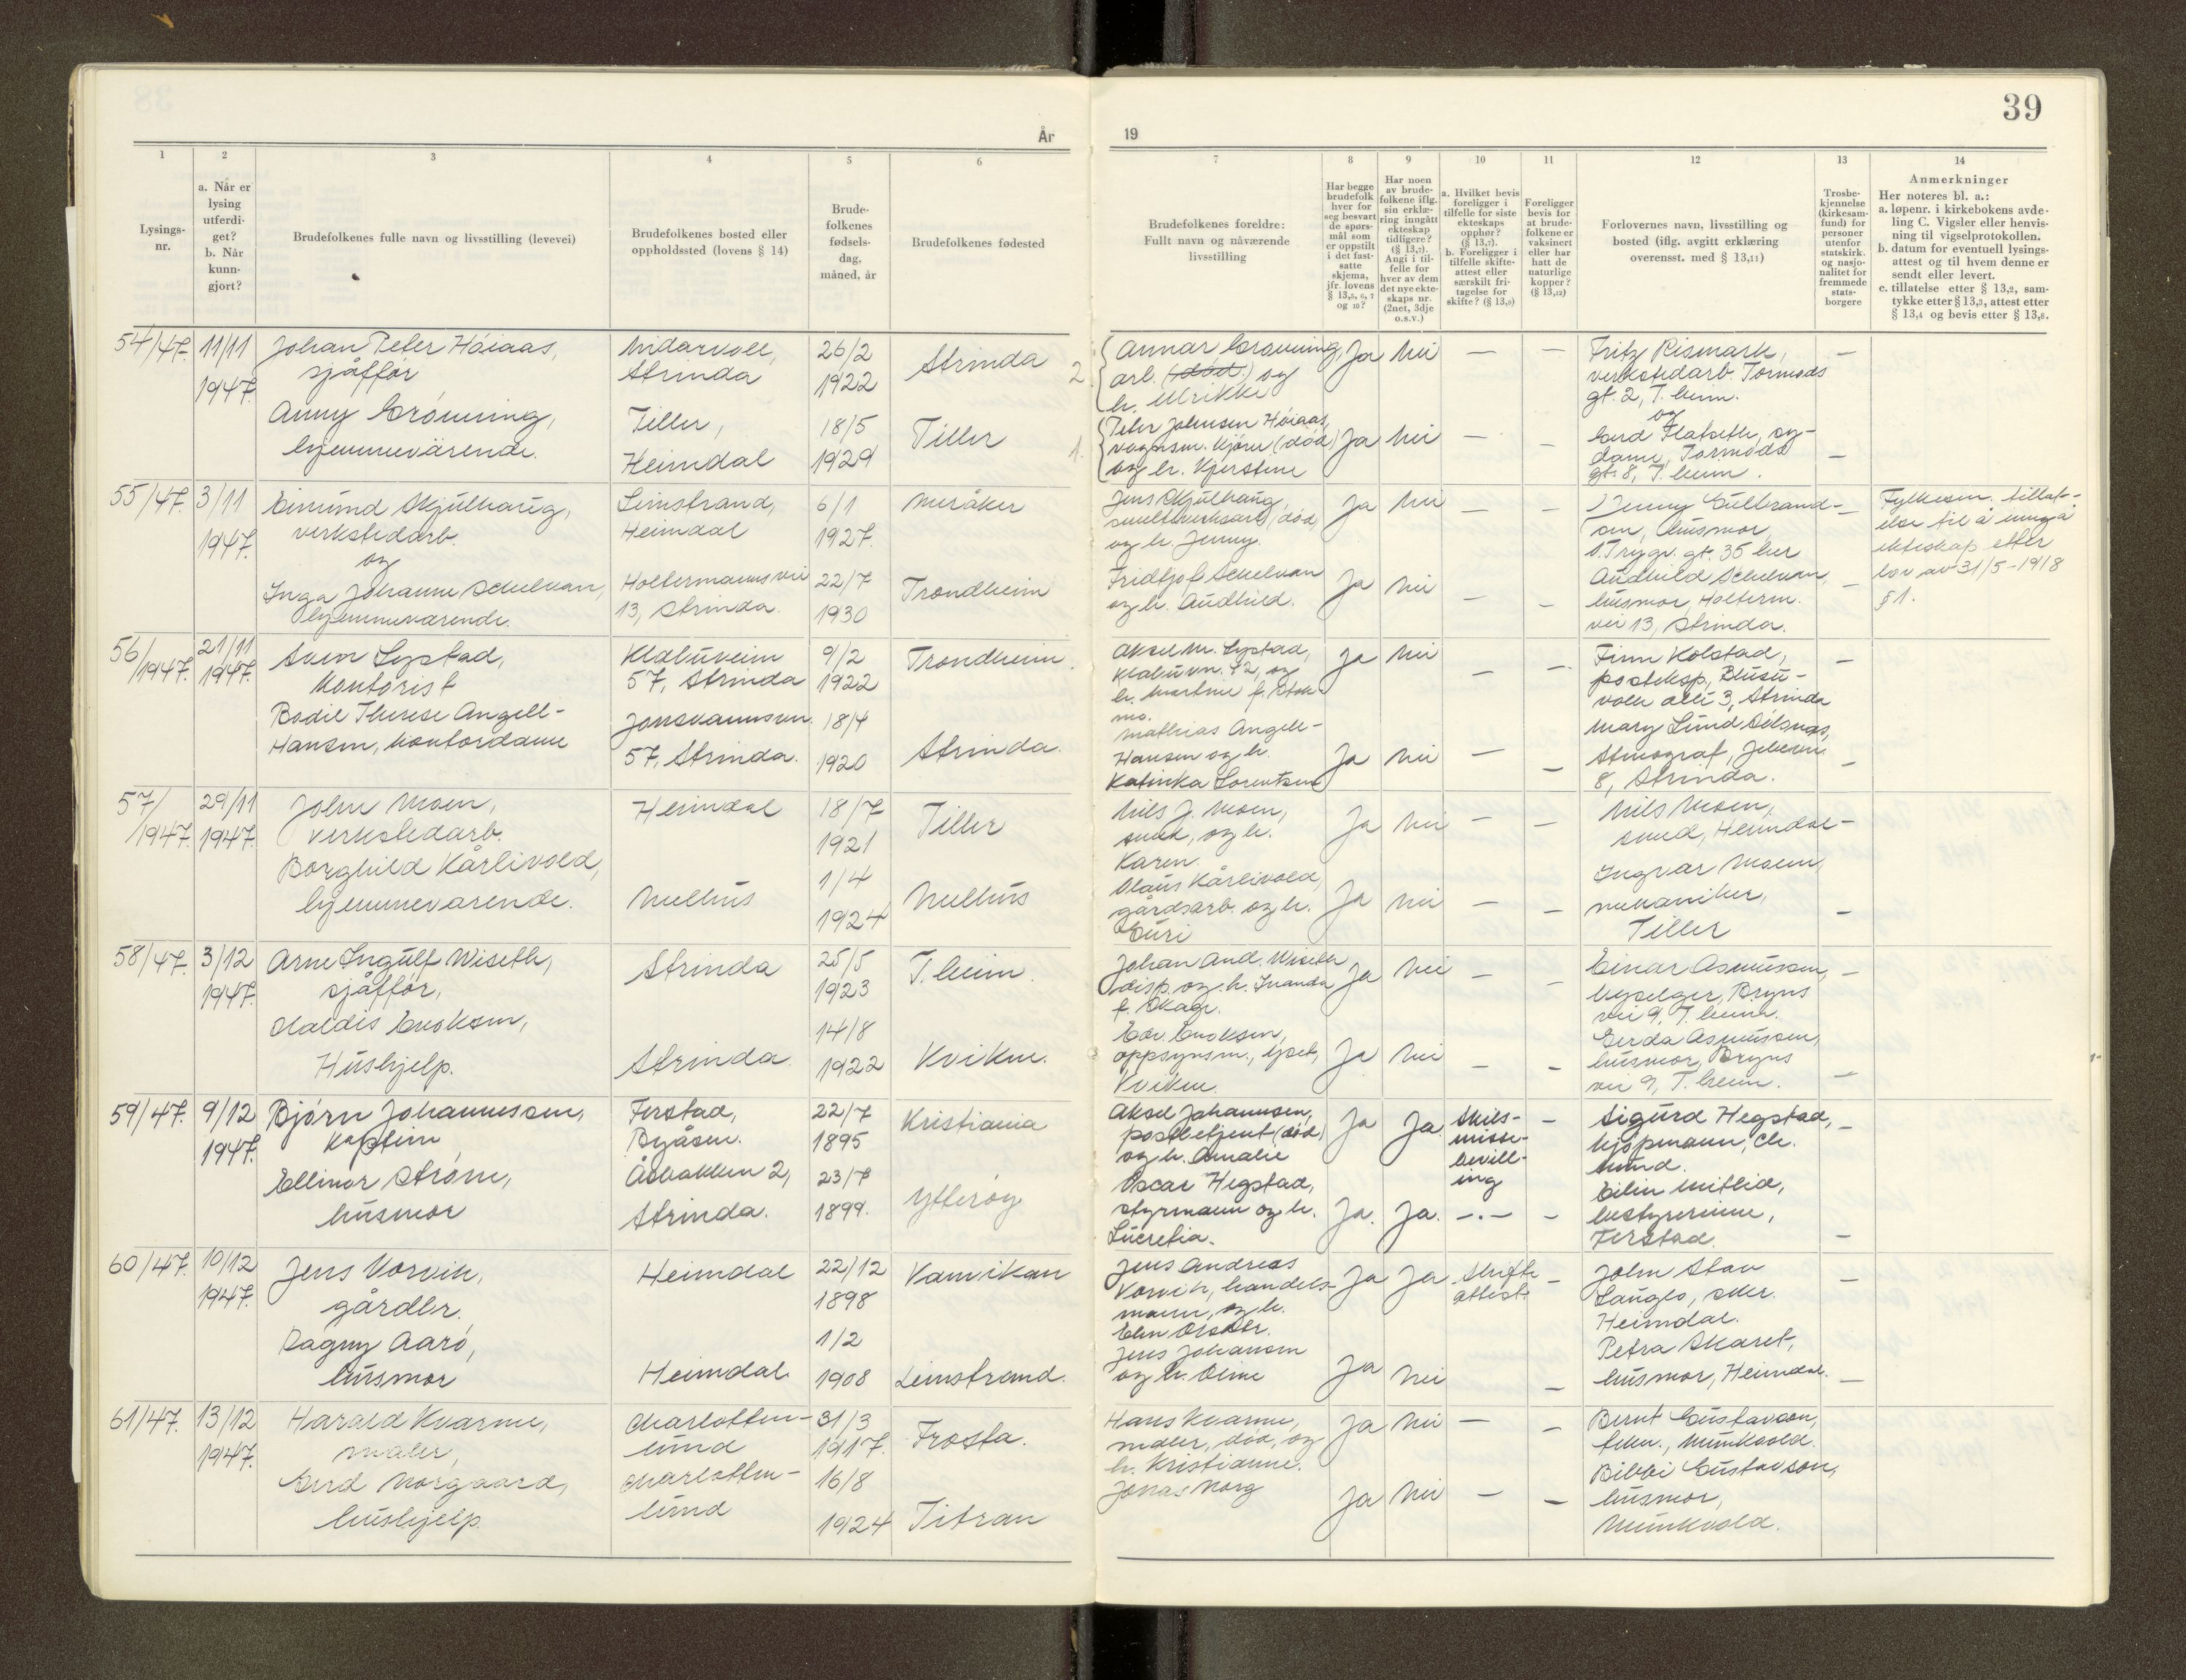 39
År
19
1
2
3
4
5
6
7
8
9
10
11
12
13
14
Lysings-
nr.
a. Når er
lysing
utferdi-
get?
b. Når
kunn-
gjort?
Brudefolkenes fulle navn og livsstilling (levevei)
Brudefolkenes bosted eller
oppholdssted (lovens § 14)
Brude-
folkenes
fødsels-
dag,
måned, år
Brudefolkenes fødested
Brudefolkenes foreldre:
Fullt navn og nåværende
livsstilling
Har begge
brudefolk
hver for
seg besvart
de spørs-
mål som
er oppstilt
i det fast-
satte
skjema,
jfr. lovens
§ 13,5, 6, 7
og 10?
Har noen
av brude-
folkene iflg.
sin erklæ-
ring inngått
ekteskap
tidligere?
(§ 13,7).
Angi i til-
felle for
hver av dem
det nye ekte-
skaps nr.
(2net, 3dje
o.s.v.)
a. Hvilket bevis
foreligger i
tilfelle for siste
ekteskaps
opphør?
(§ 13,7).
b. Foreligger i
tilfelle skifte-
attest eller
særskilt fri-
tagelse for
skifte? (§ 13,9)
Foreligger
bevis for
at brude-
folkene er
vaksinert
eller har
hatt de
naturlige
kopper?
(§ 13,12)
Forlovernes navn, livsstilling og
bosted (iflg. avgitt erklæring
overensst. med § 13,11)
Trosbe-
kjennelse
(kirkesam-
fund) for
personer
utenfor
statskirk.
og nasjo-
nalitet for
fremmede
stats-
borgere
Anmerkninger
Her noteres bl. a.:
a. løpenr. i kirkebokens avde-
ling C. Vigsler eller henvis-
ning til vigselprotokollen.
b. datum for eventuell lysings-
attest og til hvem denne er
sendt eller levert.
c. tillatelse etter § 13,2, sam-
tykke etter § 13,3, attest etter
§ 13,4 og bevis etter § 13,8.
54/47.
11/11
1947.
Johan Peter Høiaas,
sjåffør
Anny Grönning,
hjemmeværende.
Nidarvoll,
Strinda
Tiller,
Heimdal
26/2
1922
18/5
1929
Strinda
Tiller
2.
Annar Grønning,
arb. (død.) og
h. Ulrikke
1.
Peter Johnsen Høiaas,
vognm. kjører (død)
og h. Kjerstine
Ja
Nei
—
—
Ja
Nei
—
—
Fritz Rismark,
verkstedarb. Tormods
gt. 2, T.heim.
og
Gerd Flatseth, sy-
dame, Tormods
gt. 8, T.heim.
—
—
55/47.
3/11
1947.
Eimund Skjulhaug,
verkstedarb.
og
Inga Johanne Schelvan,
hjemmeværende.
Leinstrand,
Heimdal
Holtermanns vei
13, Strinda.
6/1
1927.
22/7
1930
Meråker
Trondheim
Jens Skjulhaug,
smelteverksarb, død,
og h. Jenny.
Fridtjof Schelvan
og h. Audhild.
Ja
Nei
—
—
Ja
Nei
—
—
Jenny Gulbrand-
sen, husmor,
O.Trygv. gt. 35 her
Audhild Schelvan,
husmor, Holterm.
vei 13, Strinda.
—
—
Fylkesm. tillat-
else til å inngå
ekteskap etter
lov av 31/5-1918
§ 1.
56/1947.
21/11
1947.
Sven Lystad,
kontorist
Bodil Therese Angell-
Hansen, kontordame
Klæbuveien
57, Strinda
Jonsvannsvn.
57, Strinda.
9/2
1922
18/4
1920
Trondheim.
Strinda.
Aksel M. Lystad,
Klæbuvn. 42, og
h. Martine f. Stok
mo.
Mathias Angell-
Hansen og h.
Katinka Lorentsen
Ja
Nei
—
—
Ja
Nei
—
—
Finn Kolstad,
posteksp.,
voll allé 3, Strinda
Mary Lund
Stenograf,
8, Strinda.
—
—
57/1947.
29/11
1947.
John Moen,
verkstedarb.
Borghild Kårlivold,
hjemmeværende.
Heimdal
Melhus
18/7
1921
1/4
1924
Tiller
Melhus
Nils J. Moen,
smed, og h.
Karen.
Olaus Kårlivold,
gårdsarb. og h.
Guri
Ja
Nei
—
—
Ja
Nei
—
—
Nils Moen,
smed, Heimdal-
Ingvar Moen,
mekaniker,
Tiller
—
58/47.
3/12
1947.
Arne Ingulf Wiseth,
sjåffør,
Haldis Enoksen,
Hushjelp.
Strinda
Strinda.
25/5
1923
14/8
1922
T.heim.
Kvikne.
Johan And. Wiseth
disp. og h. Inanda
f. Skage.
Edv. Enoksen,
oppsynsm.,
Kvikne
Ja
Nei
—
—
Ja
Nei
—
—
Einar Asmussen,
Bryns
vei 9, T.heim.
Gerda Asmussen,
husmor, Bryns
vei 9, T.heim.
—
—
59/47.
9/12
1947.
Bjørn Johannessen,
kaptein
Ellinor Strøm,
husmor
Ferstad,
Byåsen.
Åsbakken 2,
Strinda.
22/7
1895
23/7
1899.
Kristiania
Ytterøy
Aksel Johannsen,
postbetjent (død)
og h. Amalie
Oscar Hegstad,
styrmann og h.
Lucretia.
Ja
Ja.
Skils-
misse-
bevill-
ing
—
Ja.
Ja.
—.—
—
Sigurd Hegstad,
kjøpmann, Ch.
lund.
Eilin Mitlid,
bestyrerinne,
Ferstad.
—
—
60/47.
10/12
1947.
Jens Vorvik,
gårdbr.
Dagny Aarø,
husmor
Heimdal
Heimdal.
22/12
1898
1/2
1908
Vanvikan
Leinstrand.
Jens Andreas
Vorvik, handels-
mann, og h.
Elen Olsdtr.
Jens Johansen
og h. Oline
Ja
Ja
Skifte
attest.
—
Ja
Nei
—
John Stav
Langlo,
Heimdal.
Petra Skaret,
husmor, Heimdal.
—
—
61/47.
13/12
1947.
Harald Kvarme,
maler,
Gerd Norgaard,
hushjelp.
Charlotten-
lund
Charlotten-
lund
31/3
1917.
16/8
1924
Frosta.
Titran
Hans Kvarme,
maler, død, og
h. Kristianne.
Jonas Norg
Ja
Nei
—
—
Ja
Nei
—
—
Bernt Gustavson,
Munkvold.
Bibbi Gustavson,
husmor,
Munkvold.